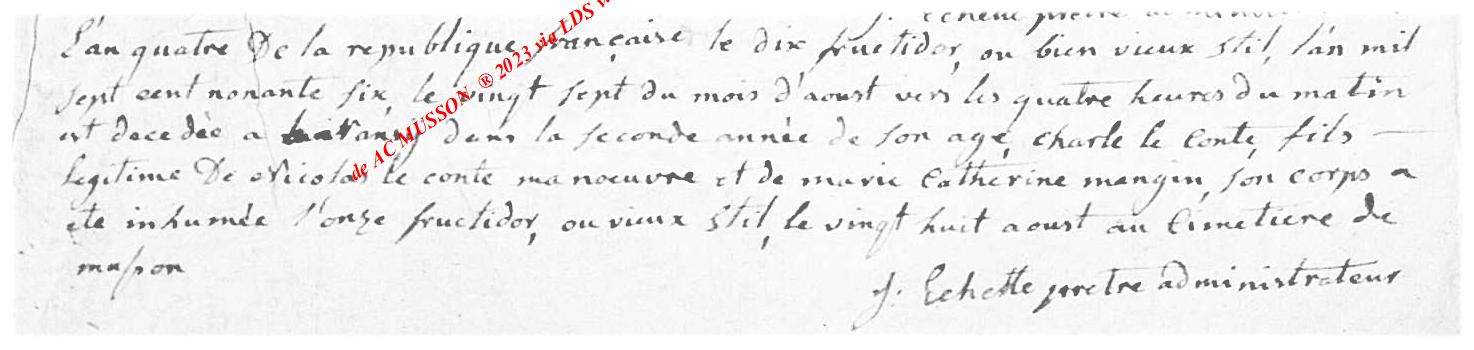 J. Echelle pretre
L'an quatre De la republique française le dix fructidor, ou bien vieux stil, l'an mil
sept cent nonante six, le vingt sept du mois d'aoust vers les quatre heures du matin
est decedée a dans la seconde année de son age, charle le conte, fils —
legitime De Nicolas le conte manoeuvre et de marie Catherine mangin, son corps a
ete inhumée l'onze fructidor, ou vieux stil, le vingt huit aoust au Cimetiere de
musson
J. Echelle pretre administrateur
de AC MUSSON ® 2023 via LDS